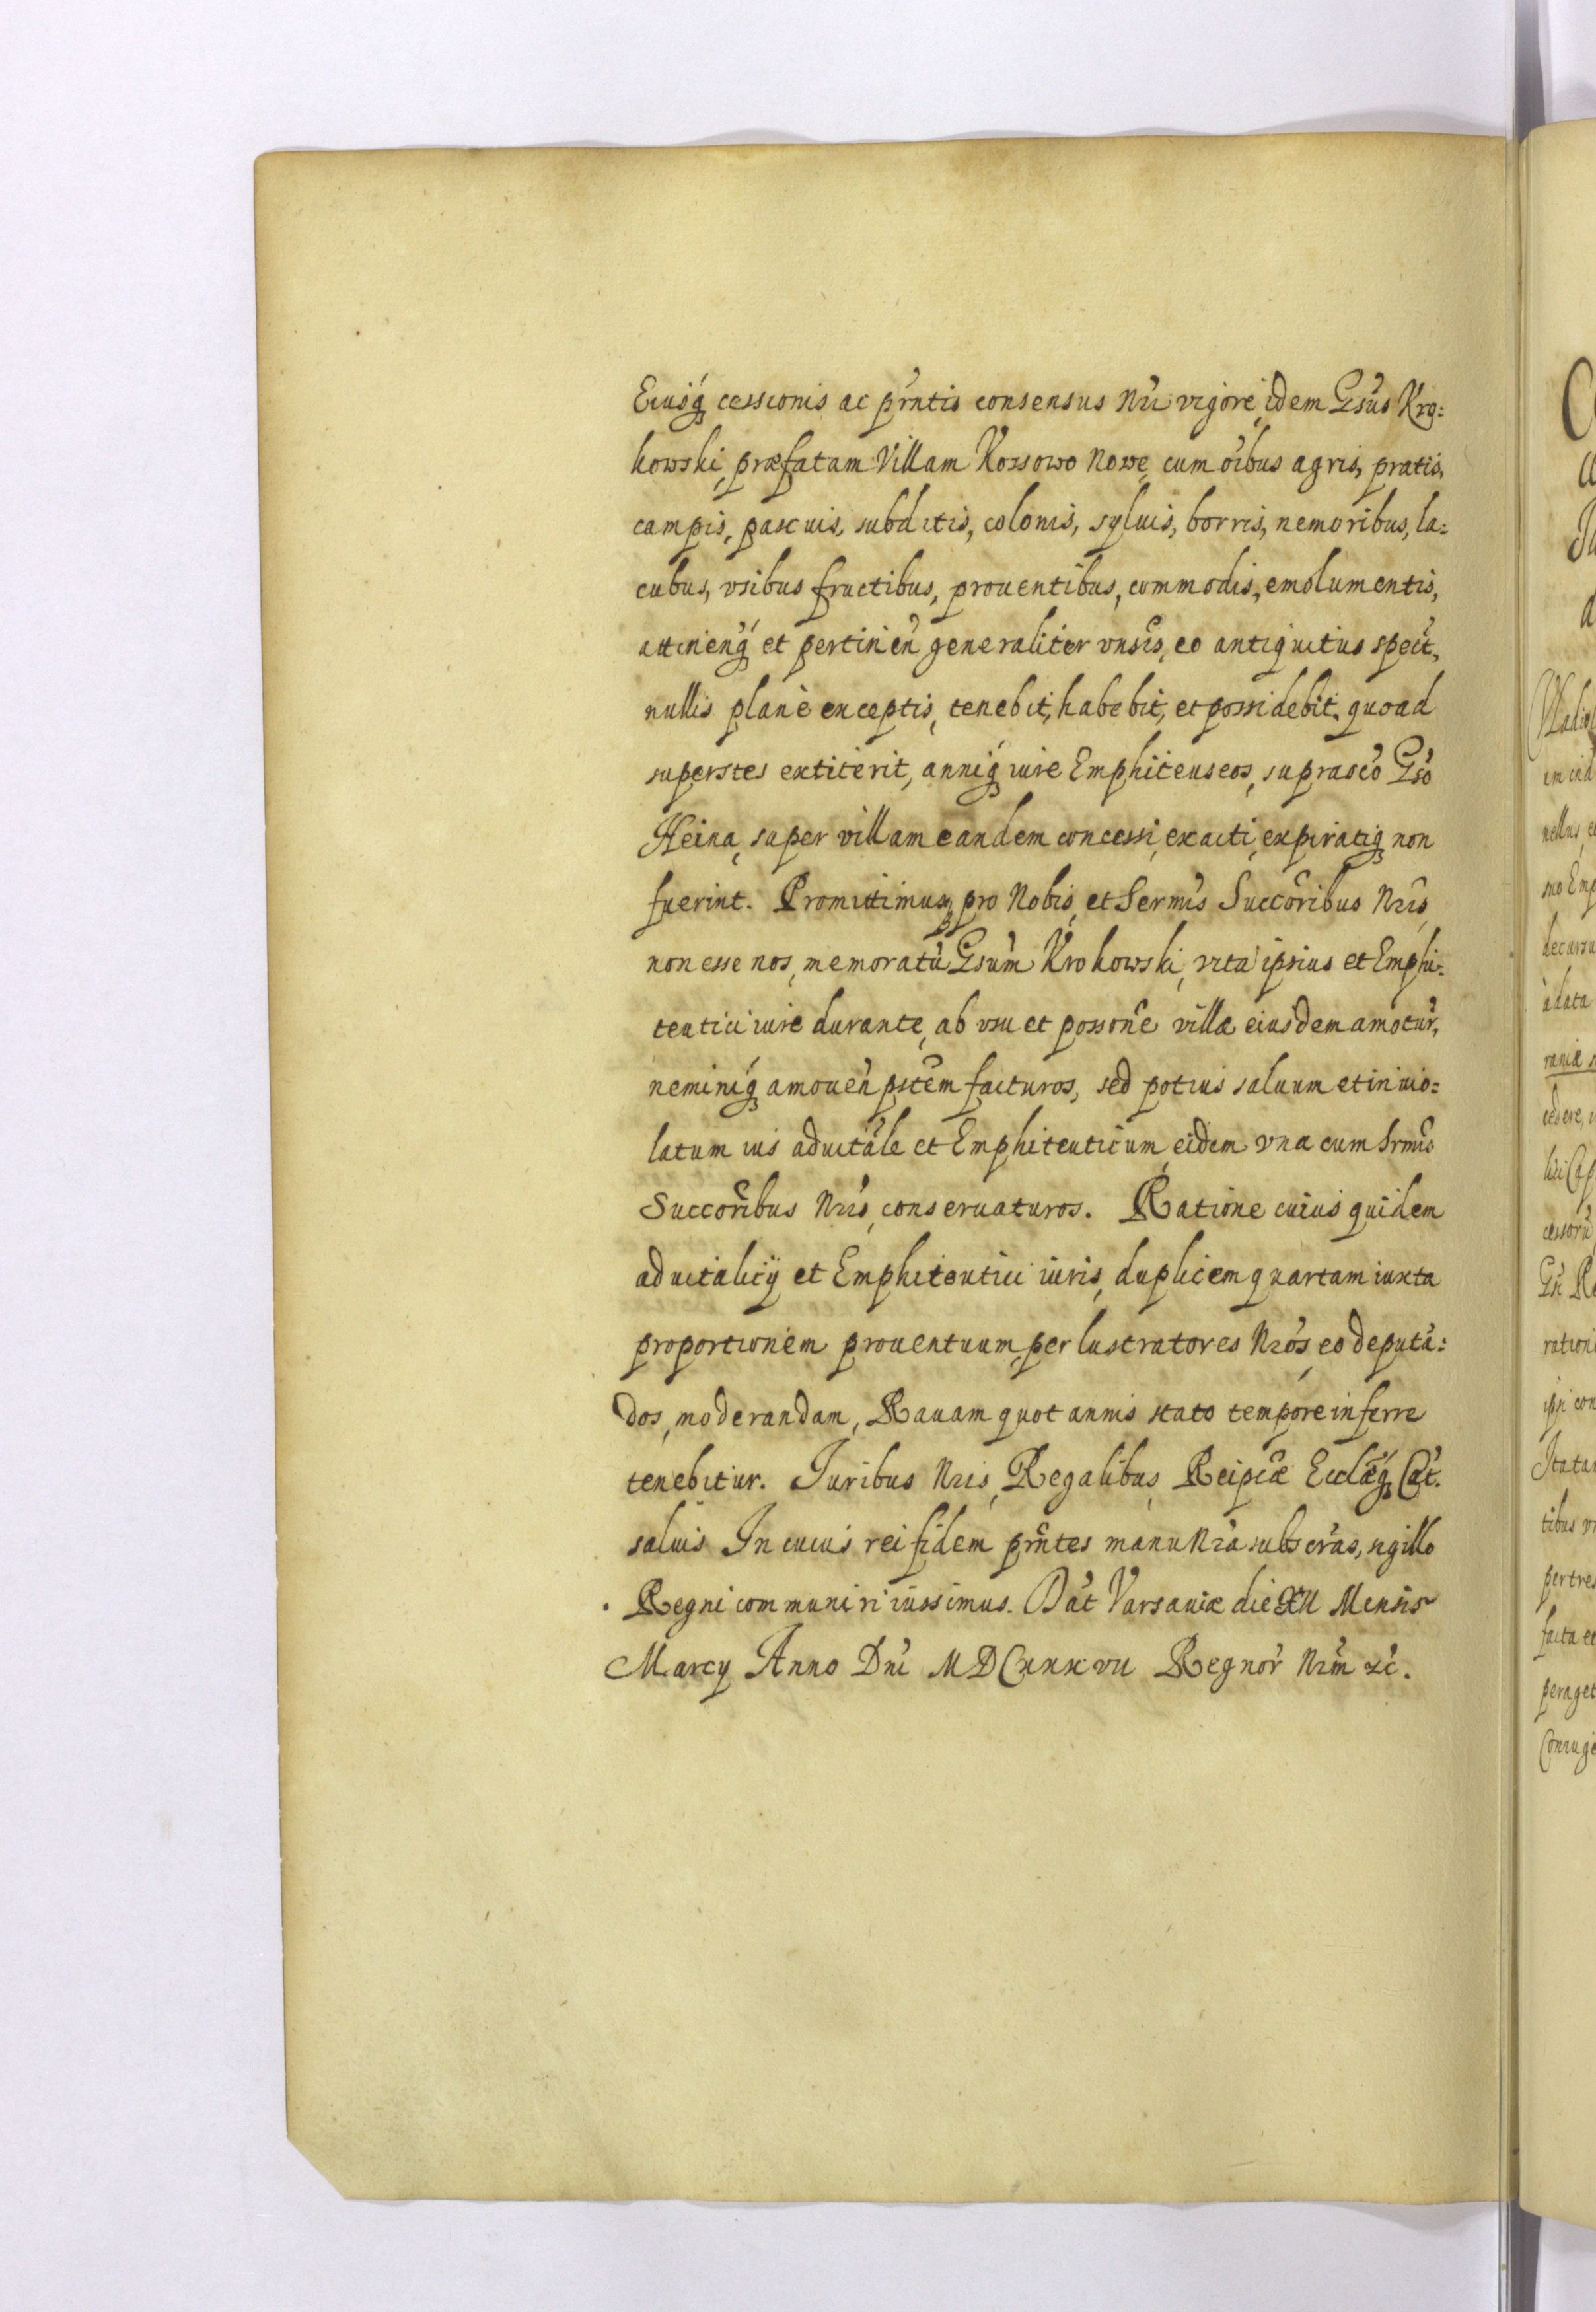 Eiusq́ cessionis ac pr̃ntis consensus Nri vigore, idem Gsus Kro:
kowski, præfatam Villam Kossowo Nowe, cum oibus agris, pratis,
campis, pascuis, subditis, colonis, syluis, borris, nemoribus, la:
cubus, vsibus fructibus, prouentibus, commodis, emolumentis,
attineñq́ et pertineñ generaliter vnsis, eo antiquitus spect,
nullis planè exceptis, tenebit, habebit, et possidebit. quoad
superstes extiterit, anniq́ iure Emphiteuseos, suprascõ Gsõ
Heina, super villam eandem concessi, exacti, expiratiq non
fuerint. Promittimusq pro Nobis, et Sermis Succoribus Nris,
non esse nos, memoratũ Gsum Krokowski, vita ipsius et Emphi:
teutici iure durante, ab vsu et possone villæ eiusdem amotur,
neminiq́ amoueñ pstem facturos, sed potius saluum et inuio:
latum ius aduitale et Emphiteuticum, eidem vna cum Srmis
Succoribus Nris, conseruaturos. Ratione cuius quidem
aduitalicij et Emphiteutici iuris, duplicem quartam iuxta
proportionem prouentuum, per lustratores Nros, eo deputa:
dos, moderandam, Rauam quot annis stato tempore inferre
tenebitur. Iuribus Nris, Regalibus, Reipcæ Ecclæq́ Cat.
saluis In cuius rei fidem pr̃ntes manu Nra subscras, sigillo
Regni communiri iussimus. Dat Varsauiæ die XII Mensis
Marcy Anno Dni MDCXXXVII Regnor Nrm &c.